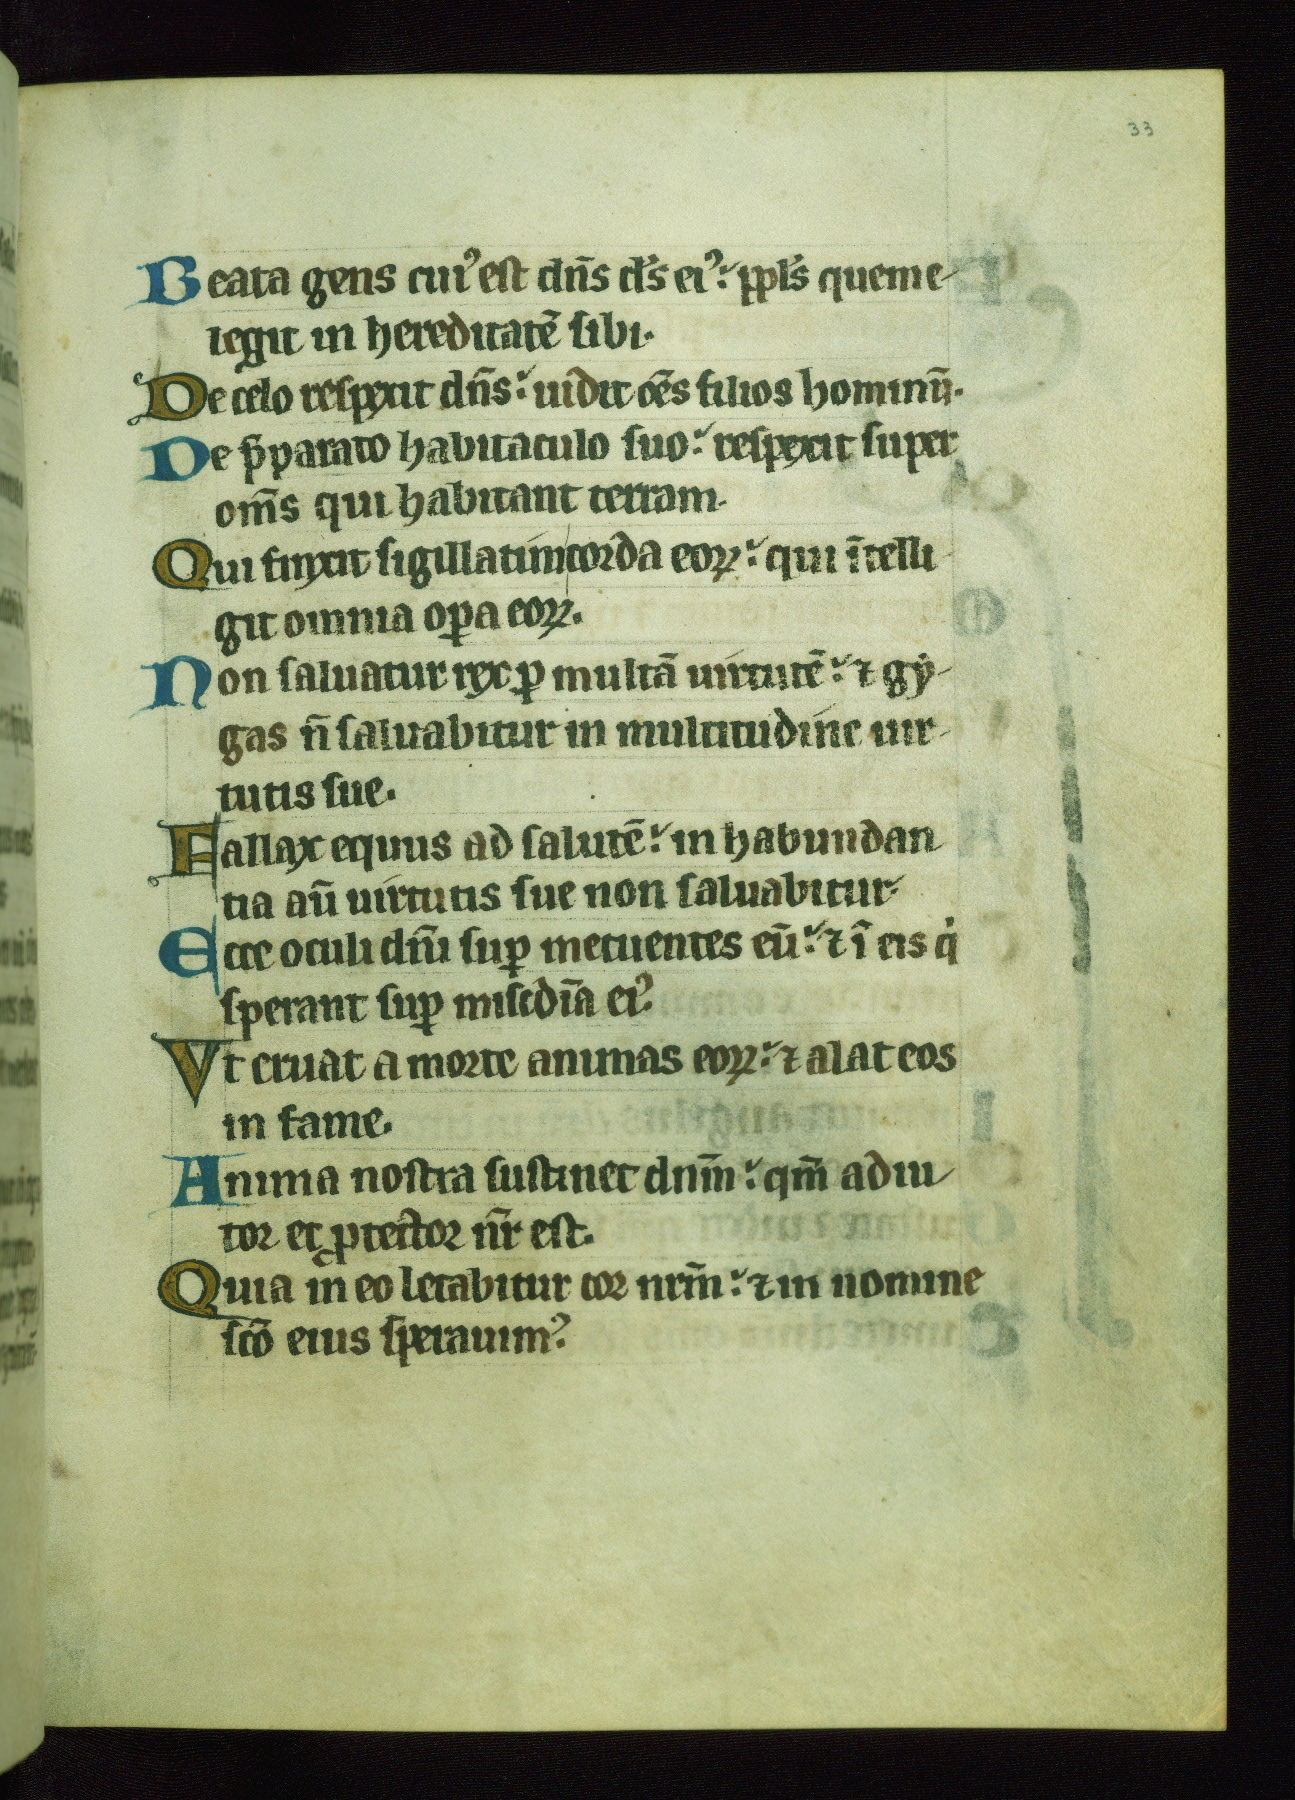 33
Beata gens cuiꝰ est dn̄s ds̄ eiꝰ: ppl̄s quem e
legit in hereditatē sibi.
De celo respexit dn̄s: uidit oēs filios hominū.
De p̄parato habitaculo suo: respexit super
om̄s qui habitant terram.
Qui finxit sigillatim corda eoꝝ: qui ītelli
git omnia oꝑa eoꝝ.
Non saluatur rex ꝑ multā uirtutē: ⁊ gy
gas n̄ saluabitur in multitudine uir
tutis sue.
Fallax equus ad salutē: in habundan
tia aū uirtutis sue non saluabitur.
Ecce oculi dn̄i suꝑ metuentes eū: ⁊ ī eis q̇
sperant suꝑ misc̄dīa eiꝰ.
Vt eruat a morte animas eoꝝ: ⁊ alat eos
in fame.
Anima nostra sustinet dnm̄: qm̄ adiu
tor et ꝓtector nr̄ est.
Quia in eo letabitur cor nrm̄: ⁊ in nomine
scō eius sperauimꝰ.